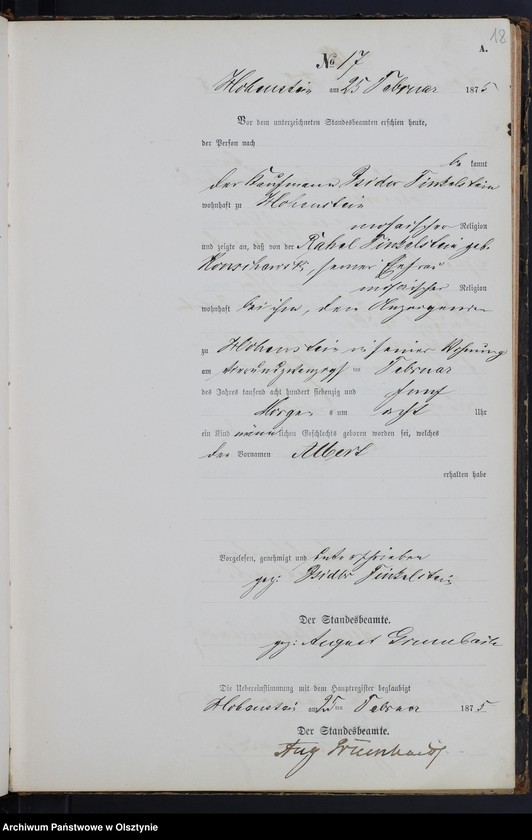 18
A.
No 17
Hohenstein am 25 Februar 1875
Vor dem unterzeichneten Standesbeamten erschien heute,
der Person nach
be kannt
der Kaufmann Isidor Finkelstein
wohnhaft zu Hohenstein
mosaischer Religion
und zeigte an, daß von der Rahel Finkelstein geb.
seiner Ehefrau
mosaischer Religion
wohnhaft bei ihm, dem Anzeigenden
zu Hohenstein in seiner Wohnung
am vierundzwanzigsten Februar
des Jahres tausend acht hundert siebenzig und fünf
Morgens um acht Uhr
ein Kind männlichen Geschlechts geboren worden sei, welches
den Vornamen Albert
erhalten habe
Vorgelesen, genehmigt und unterschrieben
gez: Isidor Finkelstein
Der Standesbeamte.
gez: August
Die Uebereinstimmung mit dem Hauptregister beglaubigt
Hohenstein am 25ten Februar 1875
Der Standesbeamte.
Aug
Archiwum Państwowe w Olsztynie